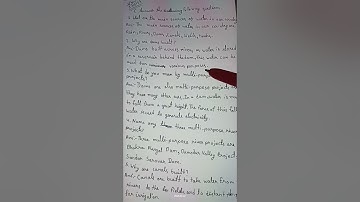 Answer the following questions
1. What are the main sources of water in our country
Ans- The main sources of water in our country are
Rain, Rivers, Dams, Canals, Wells, Tanks.
2. Why are dams built?
Ans- Dams built across rivers, so water is stored
in a reservoir behind the dam, this water can be
used for various purposes.
3. What do you mean by multi-purpose
projects?
Ans- Dams are also multi-purpose projects as
they have many other uses. In a dam water is made
to fall from a great height. The force of this fall
is used to generate electricity.
4. Name any three multi-purpose river
projects?
Ans- Three multi-purpose river projects are
Bhakra Nangal Dam, Damodar Valley Project
Sardar Sarovar Dam.
5. Why are canals built?
Ans- Canals are built to take water from
rivers to the fields and to distant places
for irrigation.